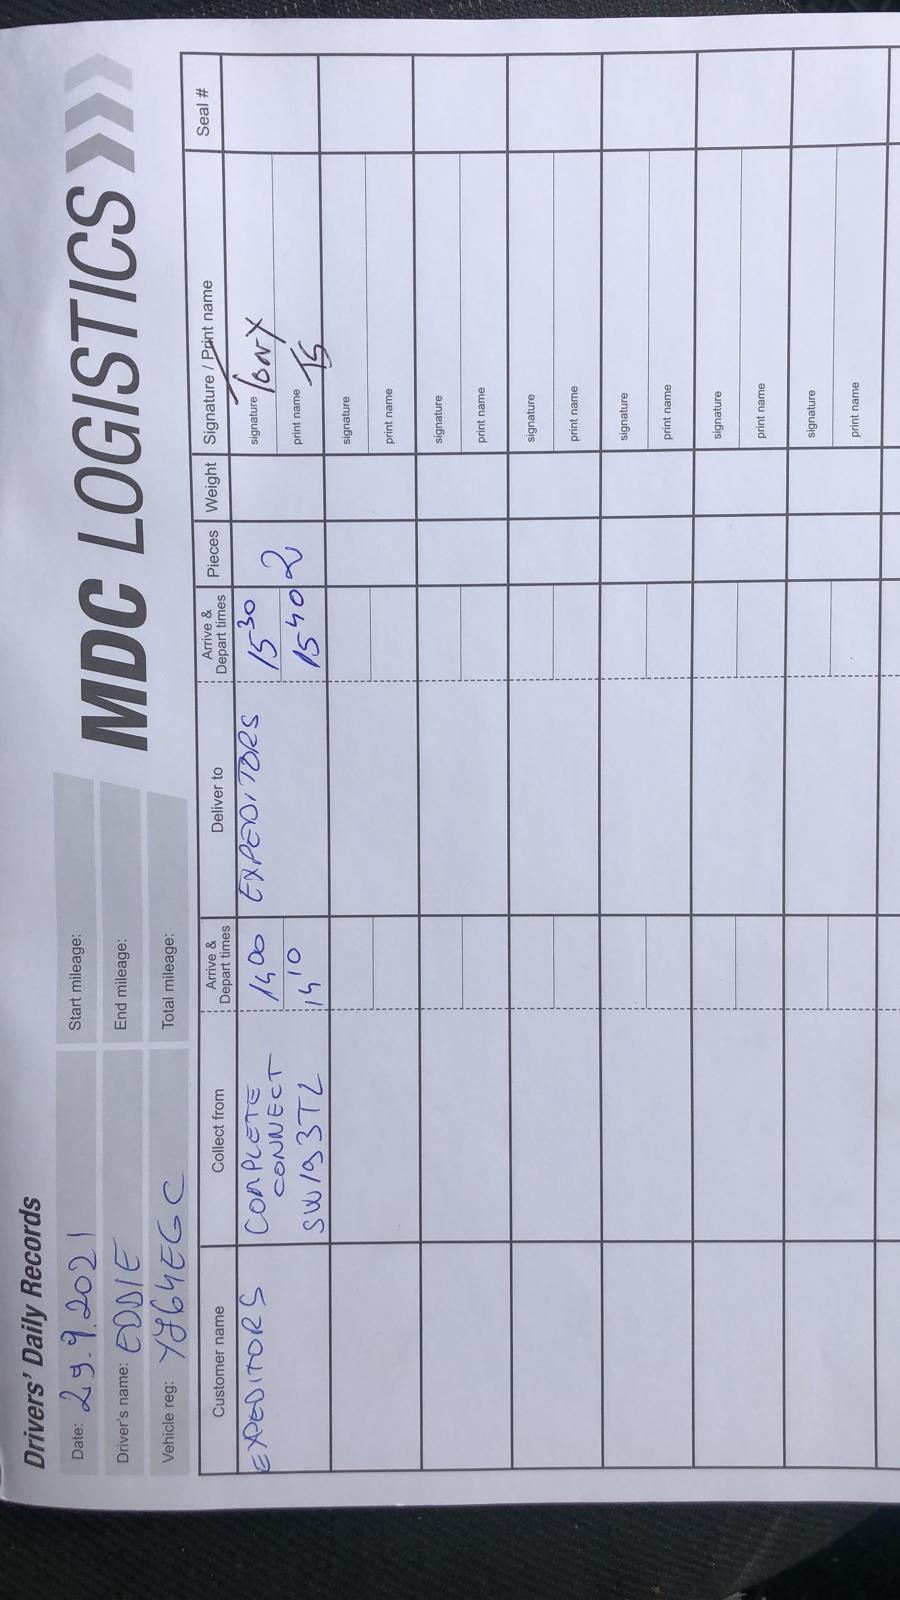 Drivers' Daily Records
MDC LOGISTICS
Date: 29.9.2021
Start mileage:
Driver's name: EDDIE
End mileage:
Vehicle reg: YJ64EGC
Total mileage:
Customer name
Collect from
Arrive & Depart times
Deliver to
Arrive & Depart times
Pieces
Weight
Signature / Print name
Seal #
EXPEDITORS
COMPLETE
CONNECT
SW19 3TL
14 00
14 10
EXPEDITORS
15 30
15 40
2
signature TONY
print name 15
signature
print name
signature
print name
signature
print name
signature
print name
signature
print name
signature
print name